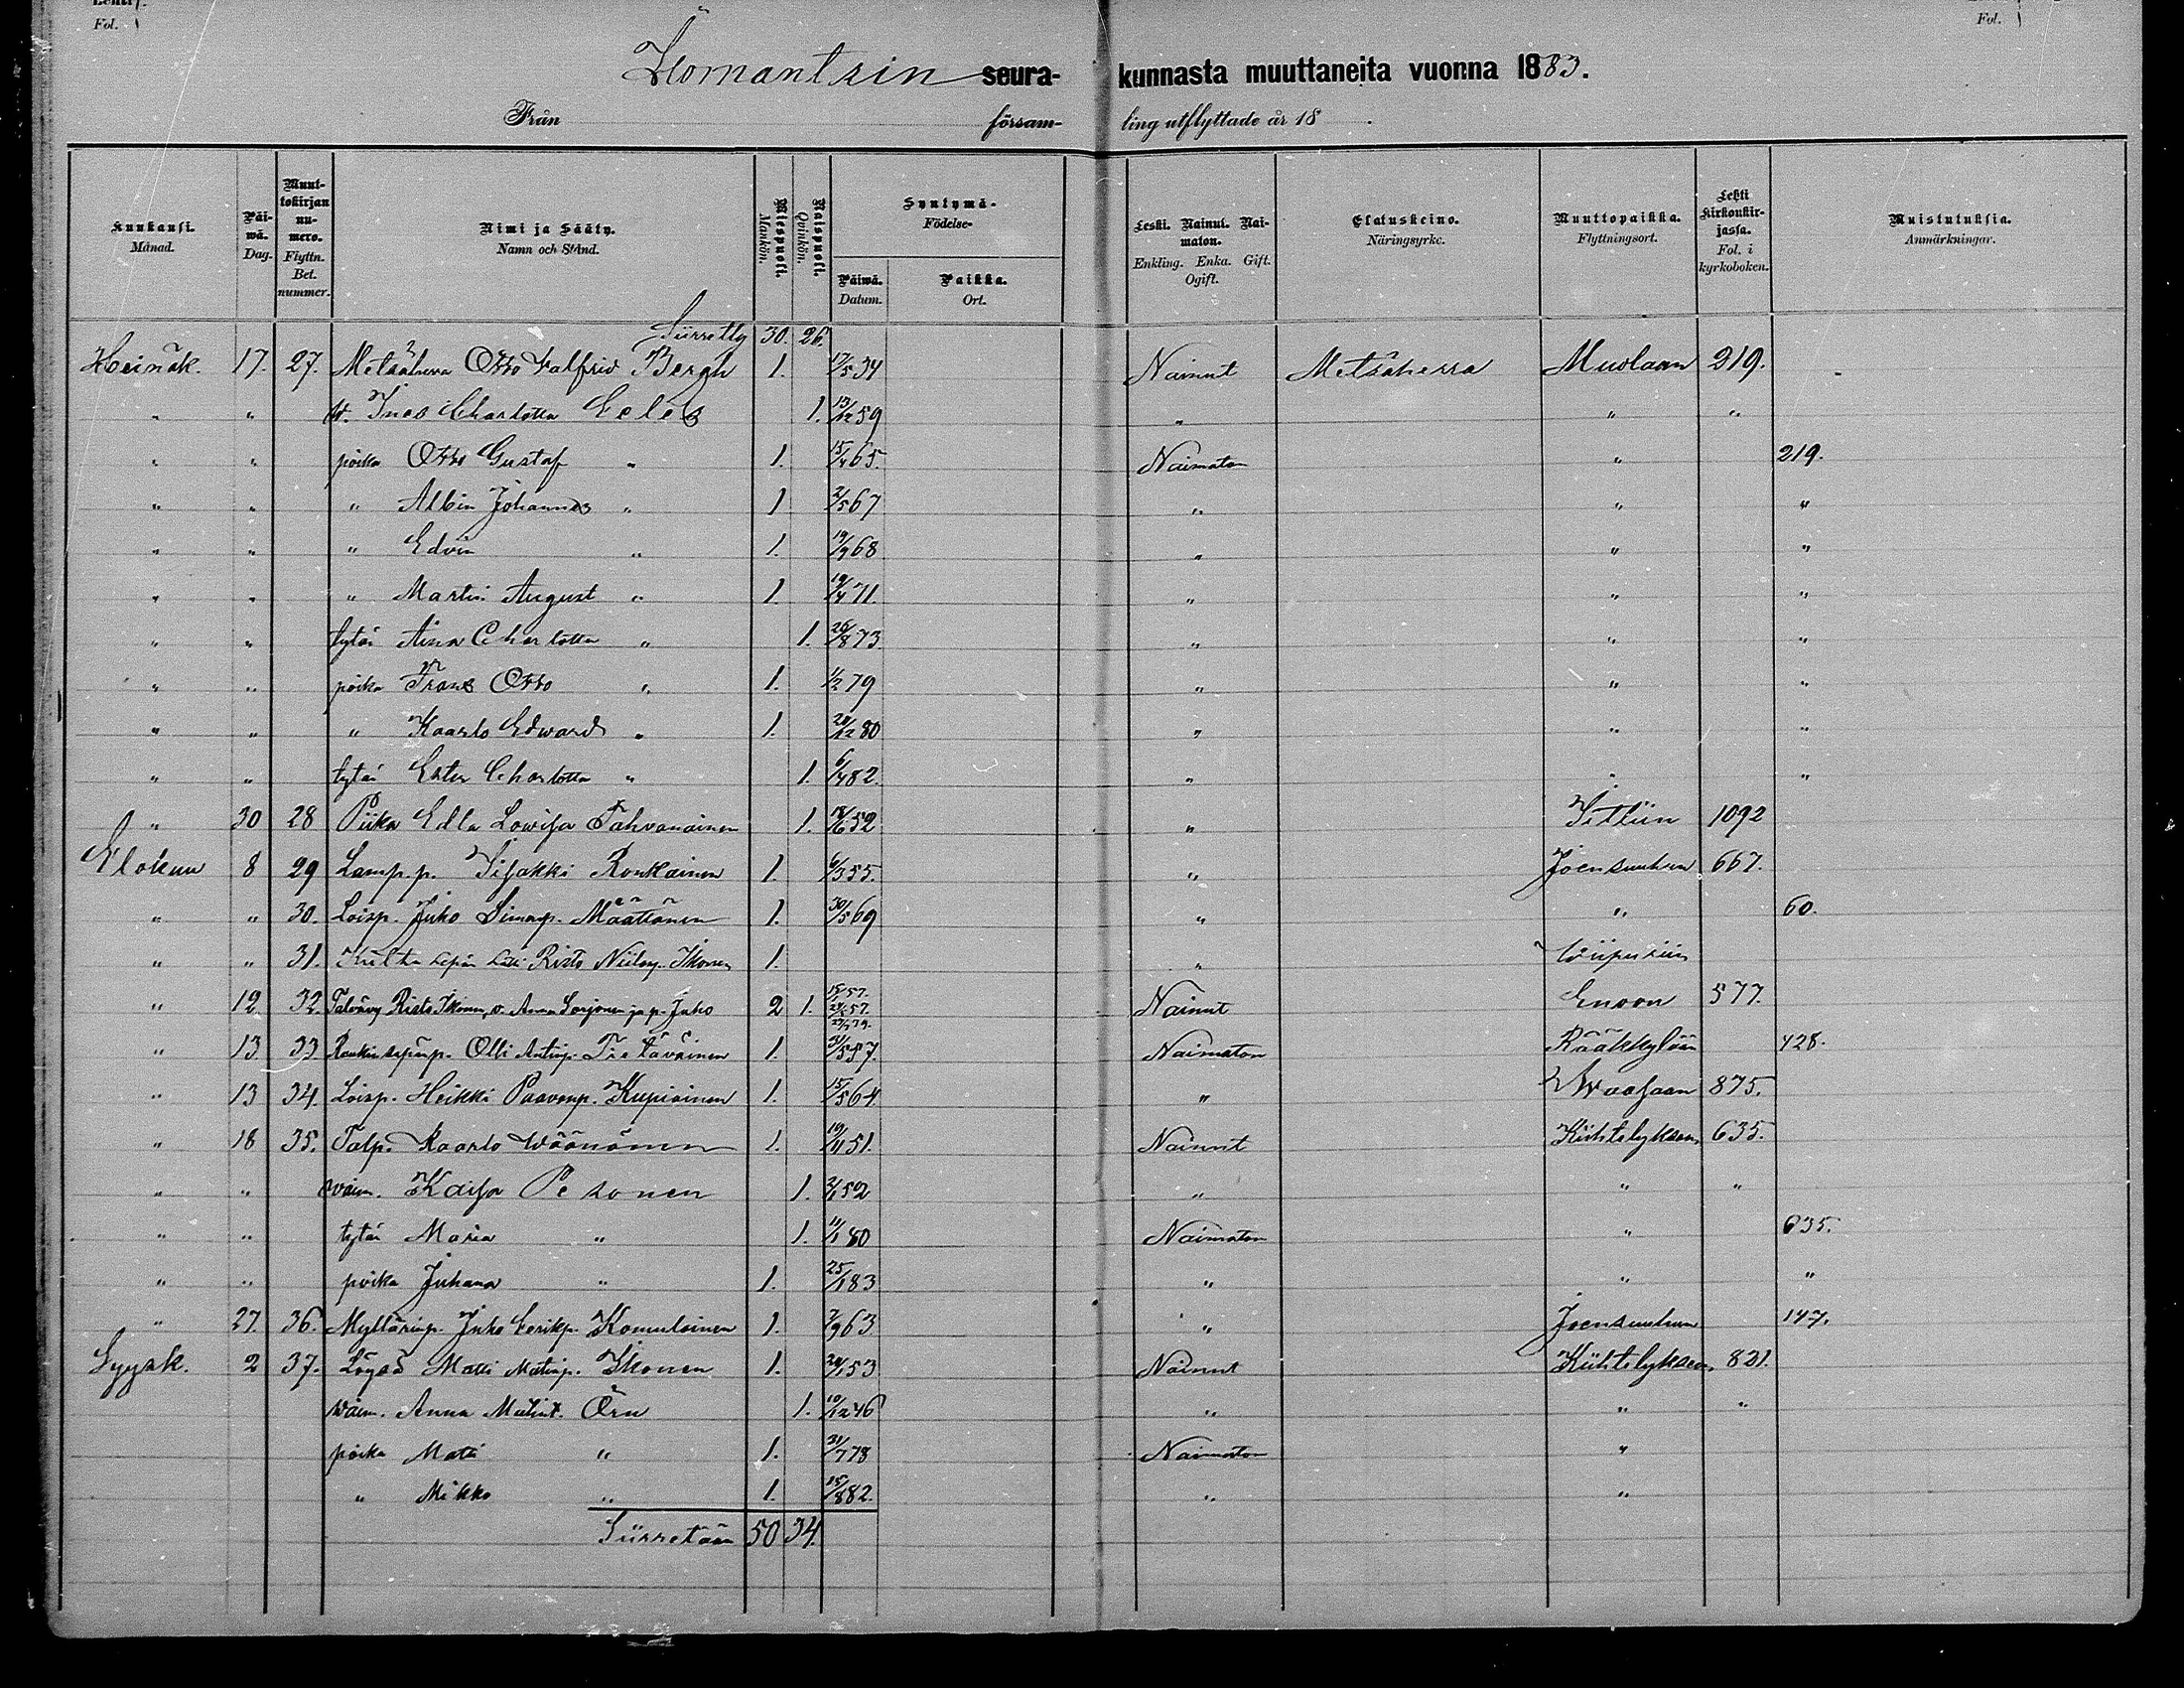 Fol.
Fol.
Ilomantsin seurakunnasta muuttaneita vuonna 1883.
Från församling utflyttade år 18
Kuukausi. Månad. Päiwä. Dag. Muuttokirjan numero. Flyttn. Bet. nummer. Nimi ja Sääty. Namn och Stånd. Miespuoli. Mankön. Naispuoli. Qvinkön. Syntymä- Födelse- Päiwä. Datum. Paikka. Ort. Leski. Nainut. Naimaton. Enkling. Enka. Gift. Ogift. Elatuskeino. Näringsyrke. Muuttopaikka. Flyttningsort. Lehti kirkonkirjassa. Fol. i kyrkoboken. Muistutuksia. Anmärkningar.
Siirretty 30. 26.
Heinäk. 17. 27. Metsäherra Otto Valfrid Bergh 1. 17/5 34 Nainut Metsäherra Muolaan 219.
" " v. Ines Charlotta Eeles 1. 13/12 59 " " "
" " poika Otto Gustaf " 1. 15/4 65. Naimaton " 219.
" " " Albin Johannes " 1 2/5 67 " " "
" " " Edvin " 1. 19/9 68 " " "
" " " Martin August " 1. 19/4 71. " " "
" " tytär Aina Charlotta " 1. 26/8 73. " " "
" " poika Frans Otto " 1. 1/2 79 " " "
" " " Kaarlo Edward " 1. 20/12 80 " " "
" " tytär Ester Charlotta " 1. 6/4 82. " " "
" 30 28 Piika Edla Lowisa Tahvanainen 1. 18/6 52 " 1092
Elokuu 8 29 Lamp.p. Isakki Ronkainen 1. 6/3 55. " Joensuuhun 667.
" " 30. Loisp. Juho Simonp. Määttänen 1. 30/5 69 " " 60.
" " 31. Risto Niilop. Ikonen 1. " Wiipuriin
" 12 32. Risto Ikonen, v. Anna Sorjonen ja p. Juho 2 1. Nainut Enoon 577.
" 13 33 Olli Antinp. Tietäväinen 1. 31/5 57. Naimaton Rääkkylään 428.
" 13 34. Loisp. Heikki Paavonp. Kupiainen 1. 15/5 64 " Waasaan 875.
" 18 35. Talp. Kaarlo Wäänänen 1. 19/11 51. Nainut Kiihtelyksen 635.
" " waim. Kaisa Pesonen 1. 2/1 52 " " "
" " tytär Maria " 1. 11/1 80 Naimaton " 635.
" " poika Juhana " 1. 25/1 83 " " "
" 27. 36. Myllärinp. Juho Eerikp. Komulainen 1. 7/9 63 " Joensuuhun 147.
Syysk. 2 37. Matti Matinp. Ikonen 1. 24/1 53 Nainut Kiihtelyksen 821.
waim. Anna Matint. Örn 1. 10/12 46 " " "
poika Matti " 1. 31/7 78 Naimaton "
" Mikko " 1. 15/8 82. " "
Siirretään 50 34.